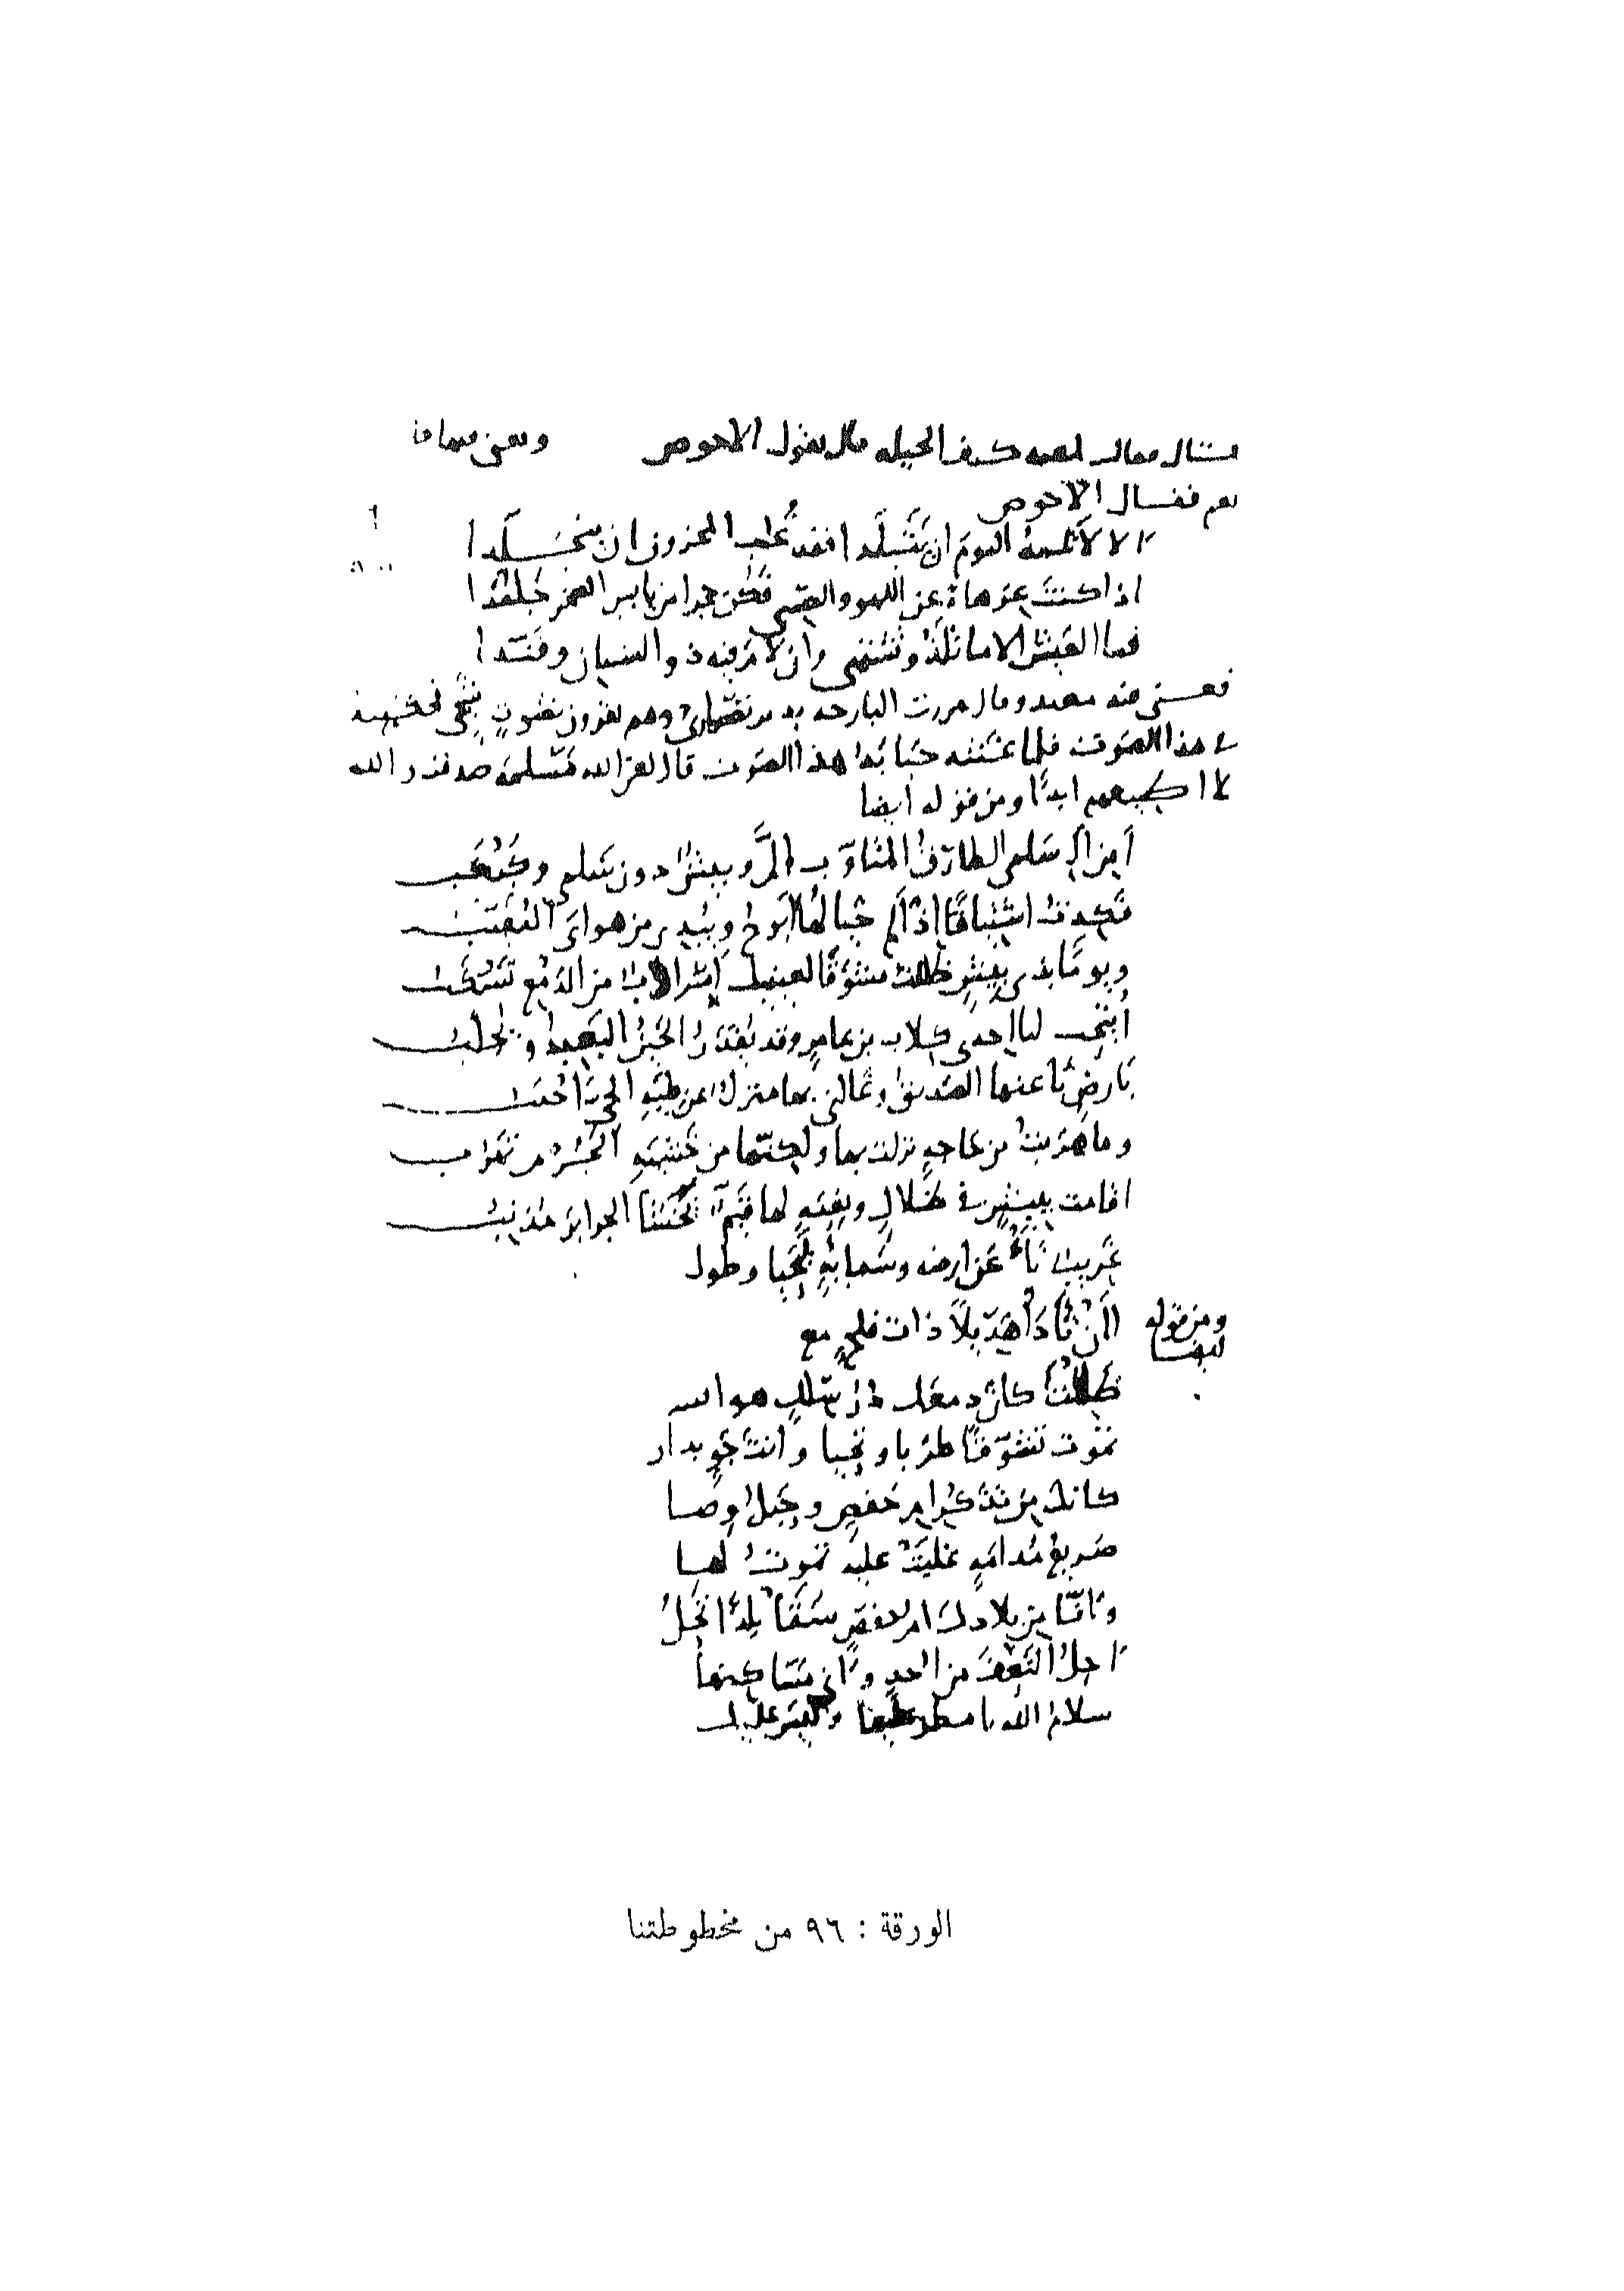 فقال لمعبد كيف الحيلة قال يقول الاحوص وتغنى فيها قا
نعم فقال الاحوص
الا لا تلمه اليوم ان يتبلدا فقد غلب المحزون ان يتجلدا
اذا كنت عزهاة عن اللهو والصبى فكن حجرا من يابس الصخر جلمدا
فما العيش الا ما تلذ وتشتهي وان لام فيه ذو الشنان وفندا
فغنى فيه معبد وقال مررت البارحة بدير نصارى وهم يقرون بصوت شجي فحكيته
في هذا الصوت فلما غنته حبابة هذا الصوت قال لعن الله مسلمة صدق والله
لا اطيعهم ابدا ومن قوله ايضا
أمن آل سلمى الطارق المتأوب الم وبيش دون سلمى وكبكب
فكدت اشتياقا اذ الم خيالها ابوح ويبدي من هواي المغيب
ويوما بذي بيش ظللت تشوقا لعينيك اسراب من الدمع تسكب
أتيح لنا احدى كلاب بن عامر وقد يقدر الحين البعيد ويجلب
بارض نأى عنها الصديق وغالني بها منزل عن طية الحي اجنب
وما هربت من حاجة نزلت بها ولكنها من خشية الجرم تهرب
اقامت ببيش في ظلال ونعمة لها قيم يخشى الجرائر مذنب
غريب نأى عن ارضه وسمائه ليحيا وطول
ومن قوله أإن نادى هديلا ذات فلج مع
ايضا
ظللت كأن دمعك در سلك هوا
تموت تشوقا طربا وتحيا وانت جو بدا
كأنك من تذكر ام حفص وحبل وصا
صريع مدامة غلبت عليه تموت لها
وأنى من بلادك ام حفص سقى بلدا تحل
احل النعف من احد وأدنى مساكنها
سلام الله يا مطر عليها وليس عليك
الورقة : ٩٦ من مخطوطتنا